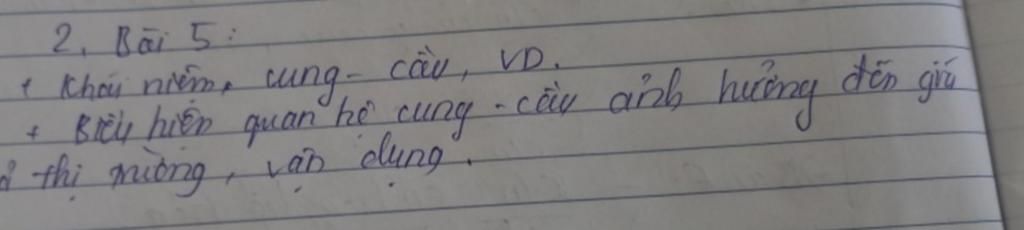 2, Bài 5:
+ Khái niệm, cung - cầu, VD.
+ Biểu hiện quan hệ cung - cầu ảnh hưởng đến giá
thị trường, vận dụng.